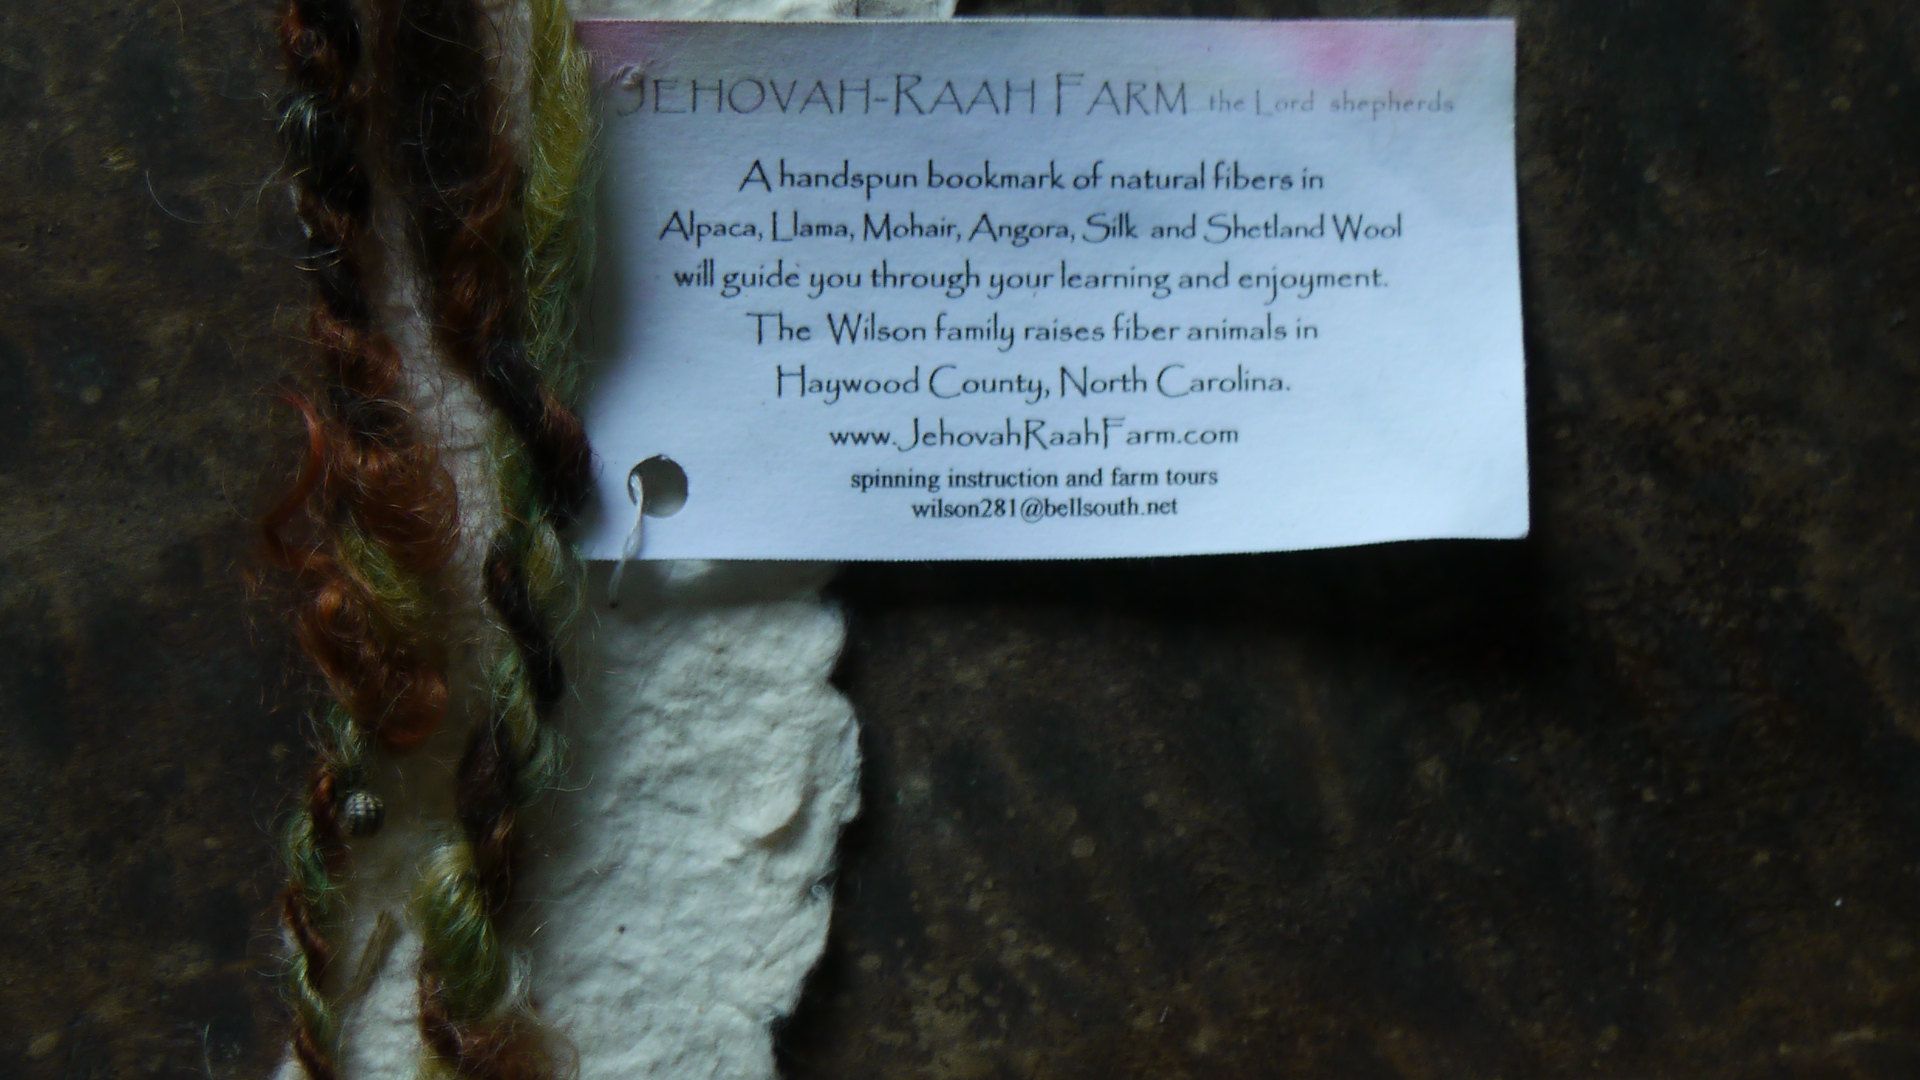 JEHOVAH-RAAH FARM the Lord shepherds
A handspun bookmark of natural fibers in
Alpaca, Llama, Mohair, Angora, Silk and Shetland Wool
will guide you through your learning and enjoyment.
The Wilson family raises fiber animals in
Haywood County, North Carolina.
www.JehovahRaahFarm.com
spinning instruction and farm tours
wilson281@bellsouth.net